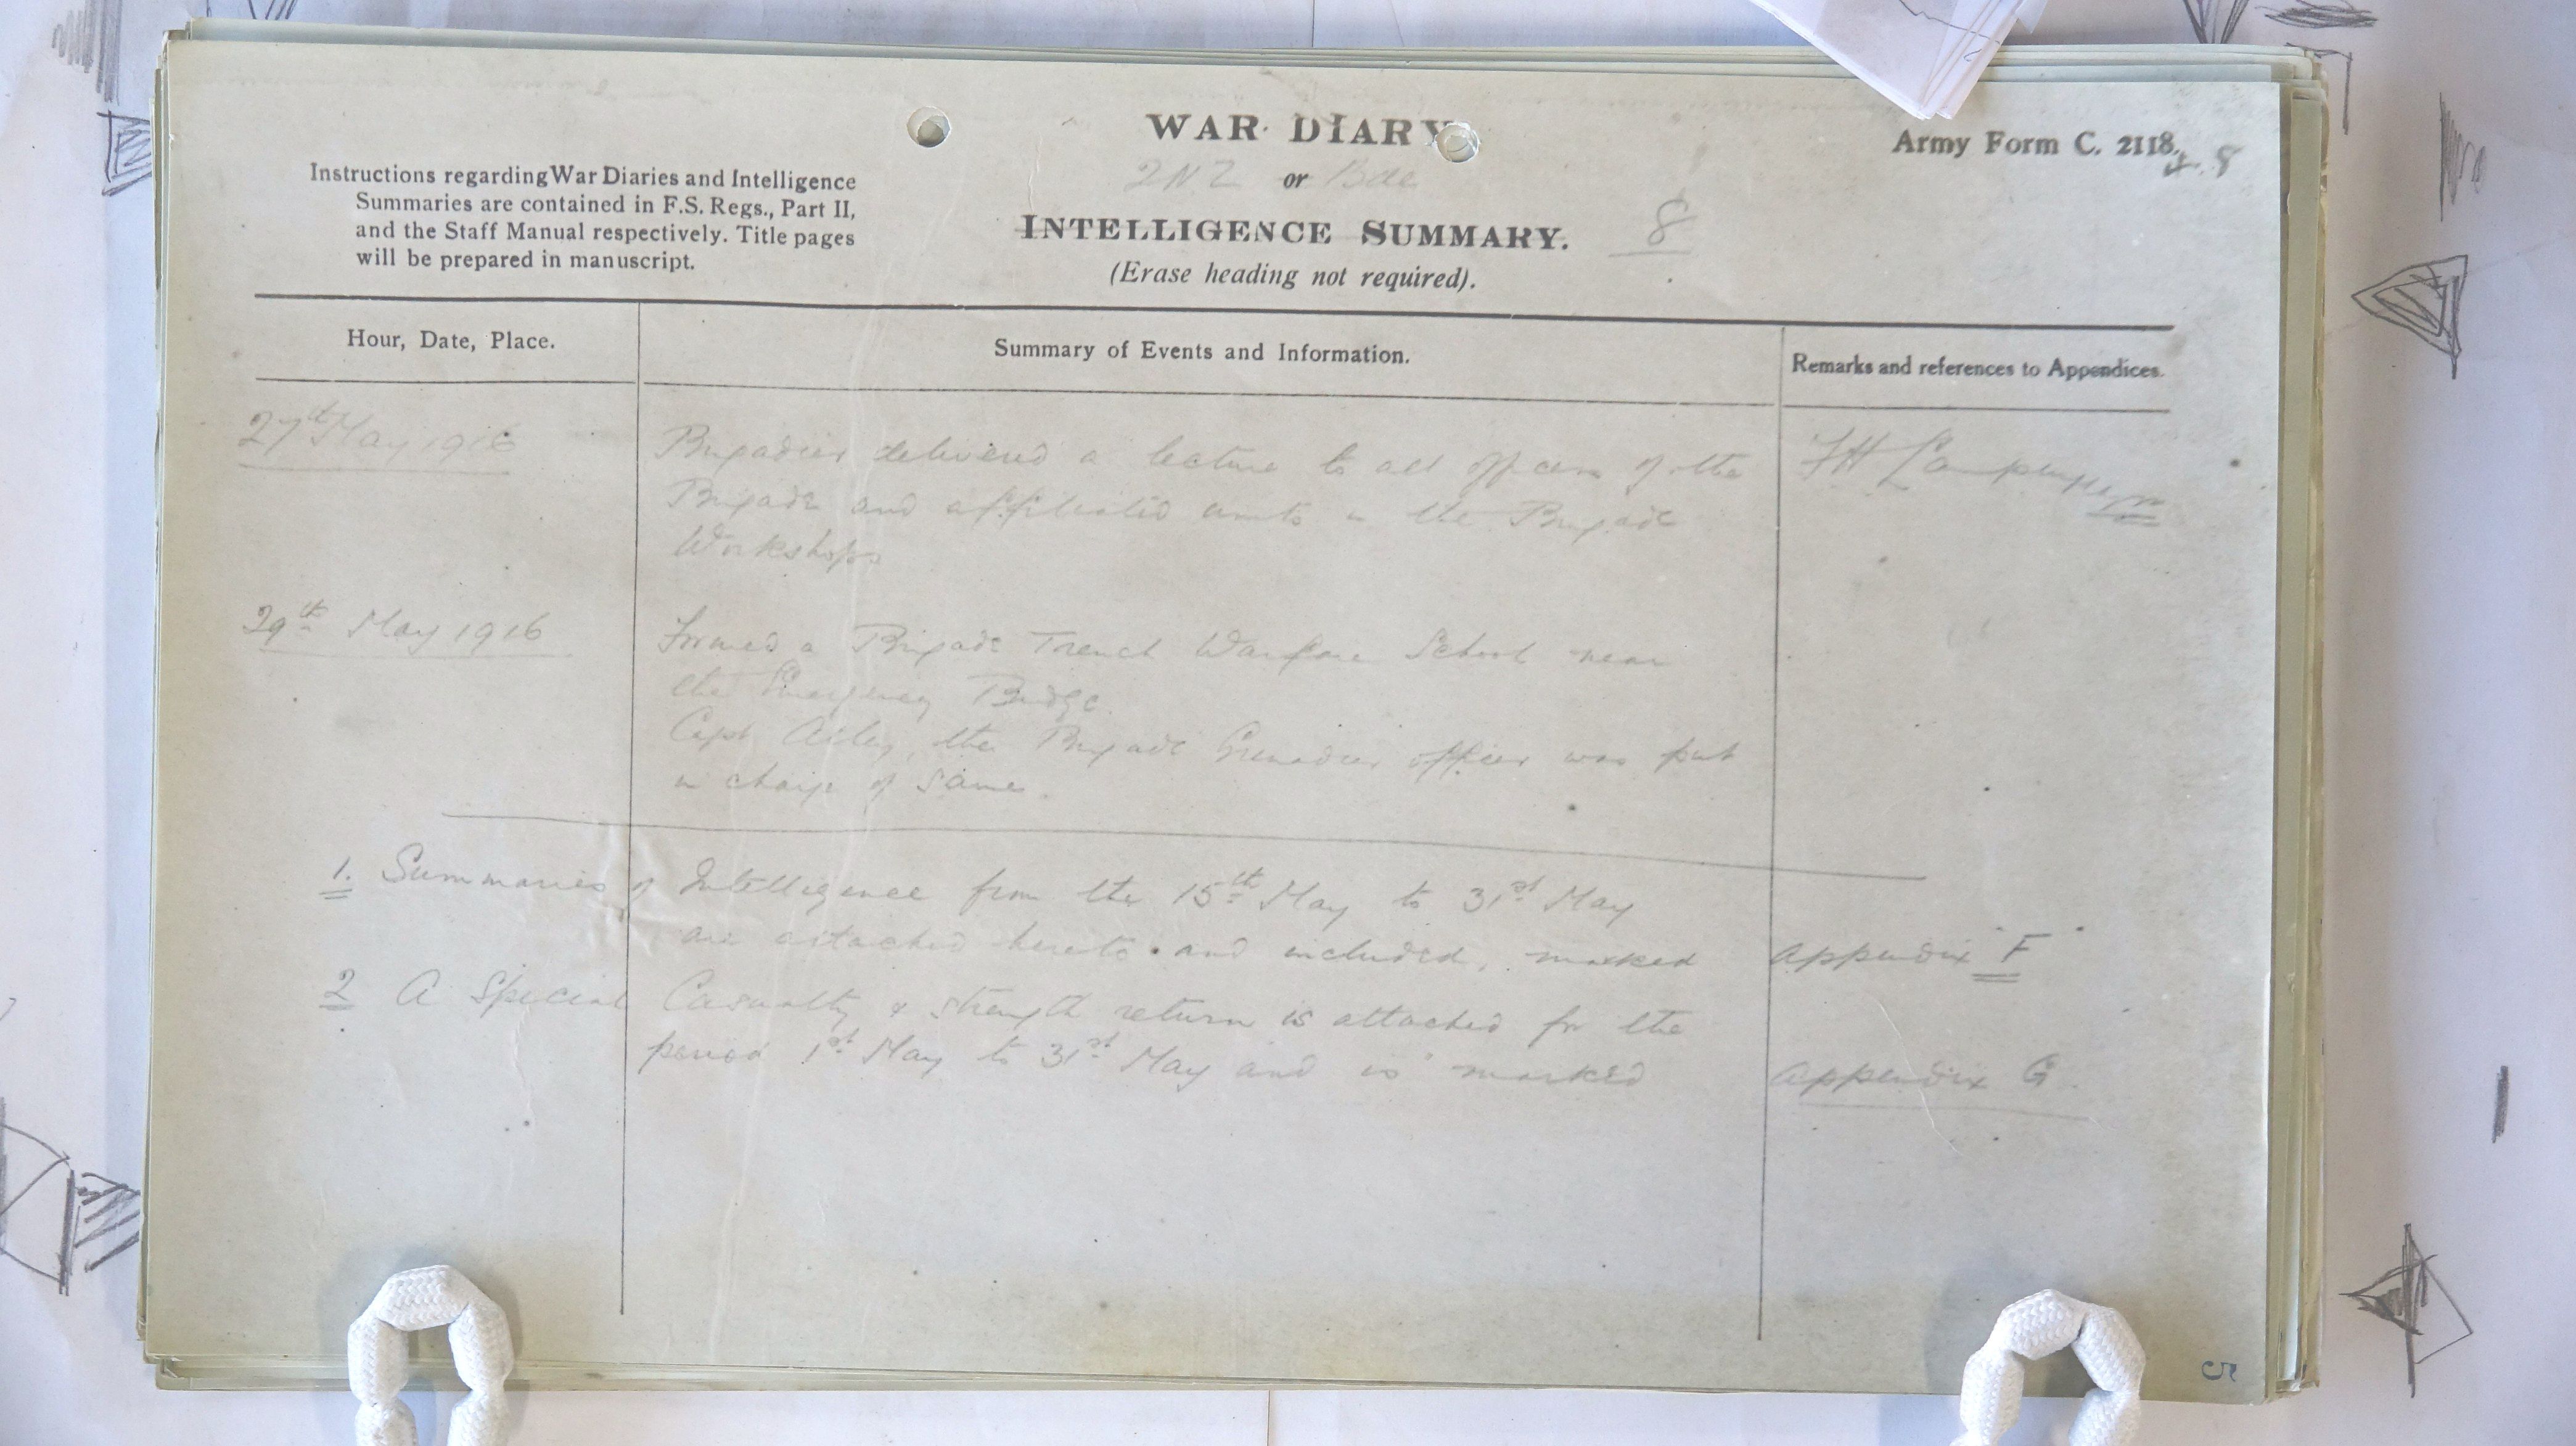 WAR DIARY
2NZ or Bde
INTELLIGENCE SUMMARY. 8
(Erase heading not required).
Army Form C. 2118.
Instructions regarding War Diaries and Intelligence
Summaries are contained in F.S. Regs., Part II,
and the Staff Manual respectively. Title pages
will be prepared in manuscript.
Hour, Date, Place.
Summary of Events and Information.
Remarks and references to Appendices.
27th May 1916
Brigadier delivered a lecture to all officers of the
Brigade and affiliated units in the Brigade
Workshops
FH
29th May 1916
Formed a Brigade Trench Warfare School near
the Emergency Bridge.
Capt the Brigade Grenadier officer was put
in charge of same.
1. Summaries of Intelligence from the 15th May to 31st May
are attached hereto and included, marked Appendix "F"
2 A Special Casualty & strength return is attached for the
period 1st May to 31st May and is marked Appendix G.
5